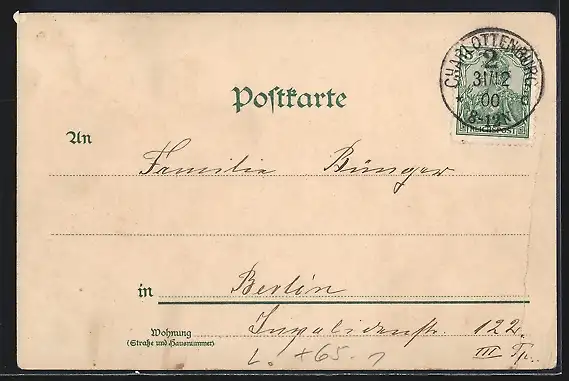 CHARLOTTENBURG
2
31/12
00
8-12N
* c
REICHSPOST
Postkarte
An Familie Bünger
in Berlin
Wohnung
(Straße und Hausnummer)
Invalidenstr 122
III Tr.
L. +65.-